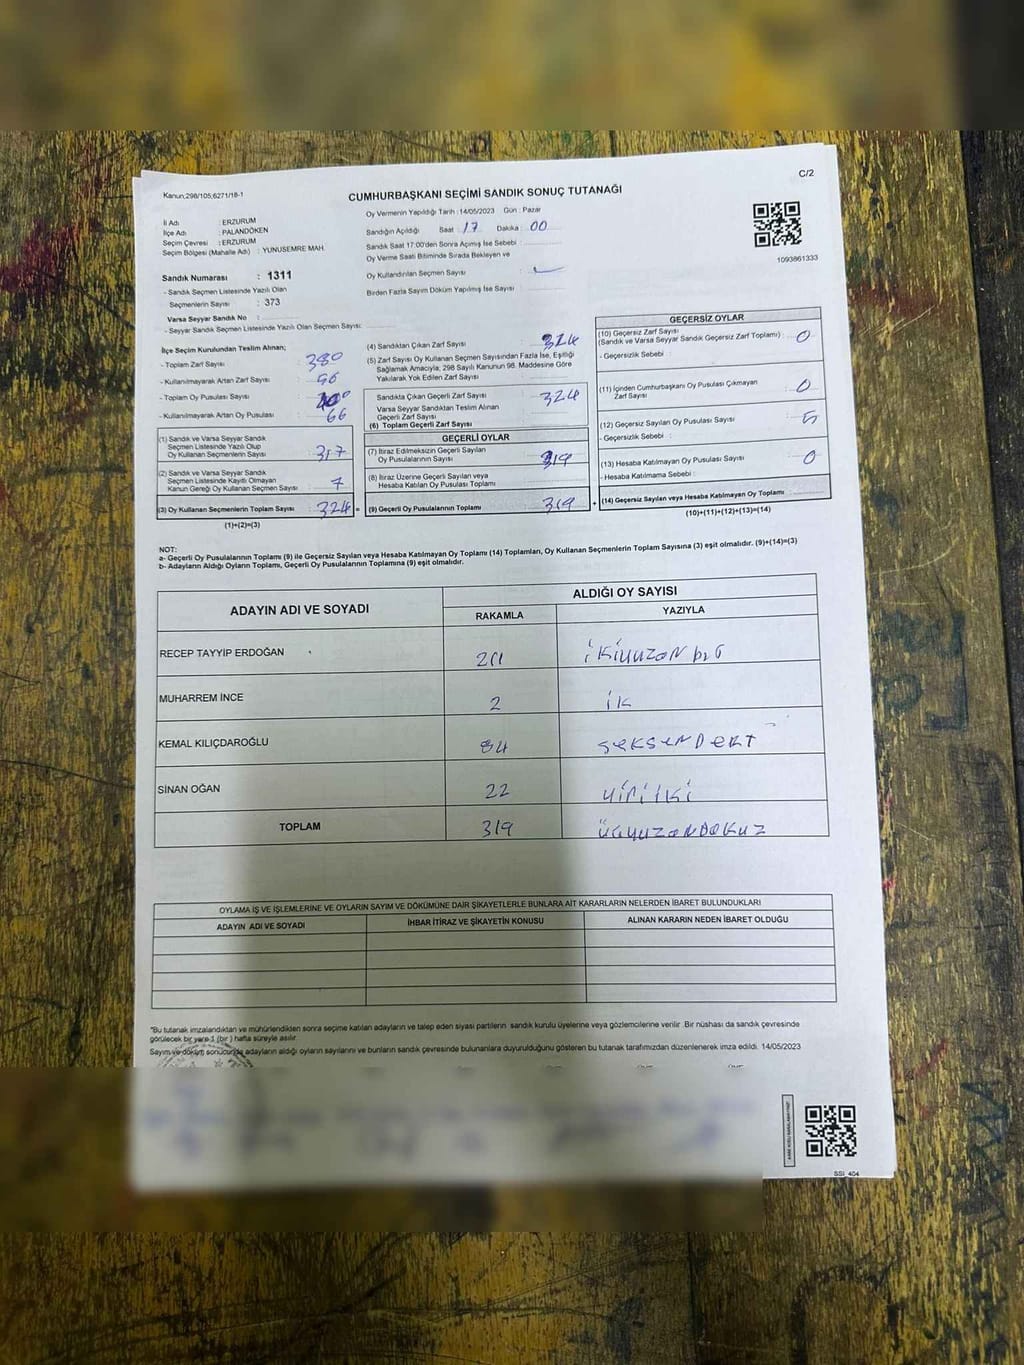 Kanun;298/105,6271/18-1
C/2
CUMHURBAŞKANI SEÇİMİ SANDIK SONUÇ TUTANAĞI
İl Adı : ERZURUM
İlçe Adı : PALANDÖKEN
Seçim Çevresi : ERZURUM
Seçim Bölgesi (Mahalle Adı) : YUNUSEMRE MAH.
Oy Vermenin Yapıldığı Tarih : 14/05/2023 Gün : Pazar
Sandığın Açıldığı Saat : 17 Dakika : 00
Sandık Saat 17:00'den Sonra Açımış İse Sebebi :
Oy Verme Saati Bitiminde Sırada Bekleyen ve
Oy Kullandırılan Seçmen Sayısı :
Birden Fazla Sayım Döküm Yapılmış İse Sayısı :
1093861333
Sandık Numarası : 1311
- Sandık Seçmen Listesinde Yazılı Olan
Seçmenlerin Sayısı : 373
Varsa Seyyar Sandık No :
- Seyyar Sandık Seçmen Listesinde Yazılı Olan Seçmen Sayısı:
İlçe Seçim Kurulundan Teslim Alınan;
- Toplam Zarf Sayısı : 380
- Kullanılmayarak Artan Zarf Sayısı :
- Toplam Oy Pusulası Sayısı :
- Kullanılmayarak Artan Oy Pusulası : 66
(1) Sandık ve Varsa Seyyar Sandık
Seçmen Listesinde Yazılı Olup
Oy Kullanan Seçmenlerin Sayısı : 317
(2) Sandık ve Varsa Seyyar Sandık
Seçmen Listesinde Kayıtlı Olmayan
Kanun Gereği Oy Kullanan Seçmen Sayısı : 7
(3) Oy Kullanan Seçmenlerin Toplam Sayısı : 324
(1)+(2)=(3)
(4) Sandıktan Çıkan Zarf Sayısı : 324
(5) Zarf Sayısı Oy Kullanan Seçmen Sayısından Fazla İse, Eşitliği
Sağlamak Amacıyla; 298 Sayılı Kanunun 98. Maddesine Göre
Yakılarak Yok Edilen Zarf Sayısı :
Sandıkta Çıkan Geçerli Zarf Sayısı : 324
Varsa Seyyar Sandıktan Teslim Alınan
Geçerli Zarf Sayısı :
(6) Toplam Geçerli Zarf Sayısı :
GEÇERLİ OYLAR
(7) İtiraz Edilmeksizin Geçerli Sayılan
Oy Pusulalarının Sayısı : 319
(8) İtiraz Üzerine Geçerli Sayılan veya
Hesaba Katılan Oy Pusulası Toplamı :
= (9) Geçerli Oy Pusulalarının Toplamı : 319 +
GEÇERSİZ OYLAR
(10) Geçersiz Zarf Sayısı
(Sandık ve Varsa Seyyar Sandık Geçersiz Zarf Toplamı) : 0
- Geçersizlik Sebebi :
(11) İçinden Cumhurbaşkanı Oy Pusulası Çıkmayan
Zarf Sayısı : 0
(12) Geçersiz Sayılan Oy Pusulası Sayısı : 5
- Geçersizlik Sebebi :
(13) Hesaba Katılmayan Oy Pusulası Sayısı : 0
- Hesaba Katılmama Sebebi :
(14) Geçersiz Sayılan veya Hesaba Katılmayan Oy Toplamı :
(10)+(11)+(12)+(13)=(14)
NOT:
a- Geçerli Oy Pusulalarının Toplamı (9) ile Geçersiz Sayılan veya Hesaba Katılmayan Oy Toplamı (14) Toplamları, Oy Kullanan Seçmenlerin Toplam Sayısına (3) eşit olmalıdır. (9)+(14)=(3)
b- Adayların Aldığı Oyların Toplamı, Geçerli Oy Pusulalarının Toplamına (9) eşit olmalıdır.
ADAYIN ADI VE SOYADI
ALDIĞI OY SAYISI
RAKAMLA YAZIYLA
RECEP TAYYİP ERDOĞAN 211 ikiyuzon bir
MUHARREM İNCE 2 ik
KEMAL KILIÇDAROĞLU 84 seksenDert
SİNAN OĞAN 22 yiri iki
TOPLAM 319 üçyuzonDokuz
OYLAMA İŞ VE İŞLEMLERİNE VE OYLARIN SAYIM VE DÖKÜMÜNE DAİR ŞİKAYETLERLE BUNLARA AİT KARARLARIN NELERDEN İBARET BULUNDUKLARI
ADAYIN ADI VE SOYADI İHBAR İTİRAZ VE ŞİKAYETİN KONUSU ALINAN KARARIN NEDEN İBARET OLDUĞU
*Bu tutanak imzalandıktan ve mühürlendikten sonra seçime katılan adayların ve talep eden siyasi partilerin sandık kurulu üyelerine veya gözlemcilerine verilir. Bir nüshası da sandık çevresinde
görülecek bir yere 1 (bir) hafta süreyle asılır.
Sayım ve döküm sonucunda adayların aldığı oyların sayılarını ve bunların sandık çevresinde bulunanlara duyurulduğunu gösteren bu tutanak tarafımızdan düzenlenerek imza edildi. 14/05/2023
SSİ_404